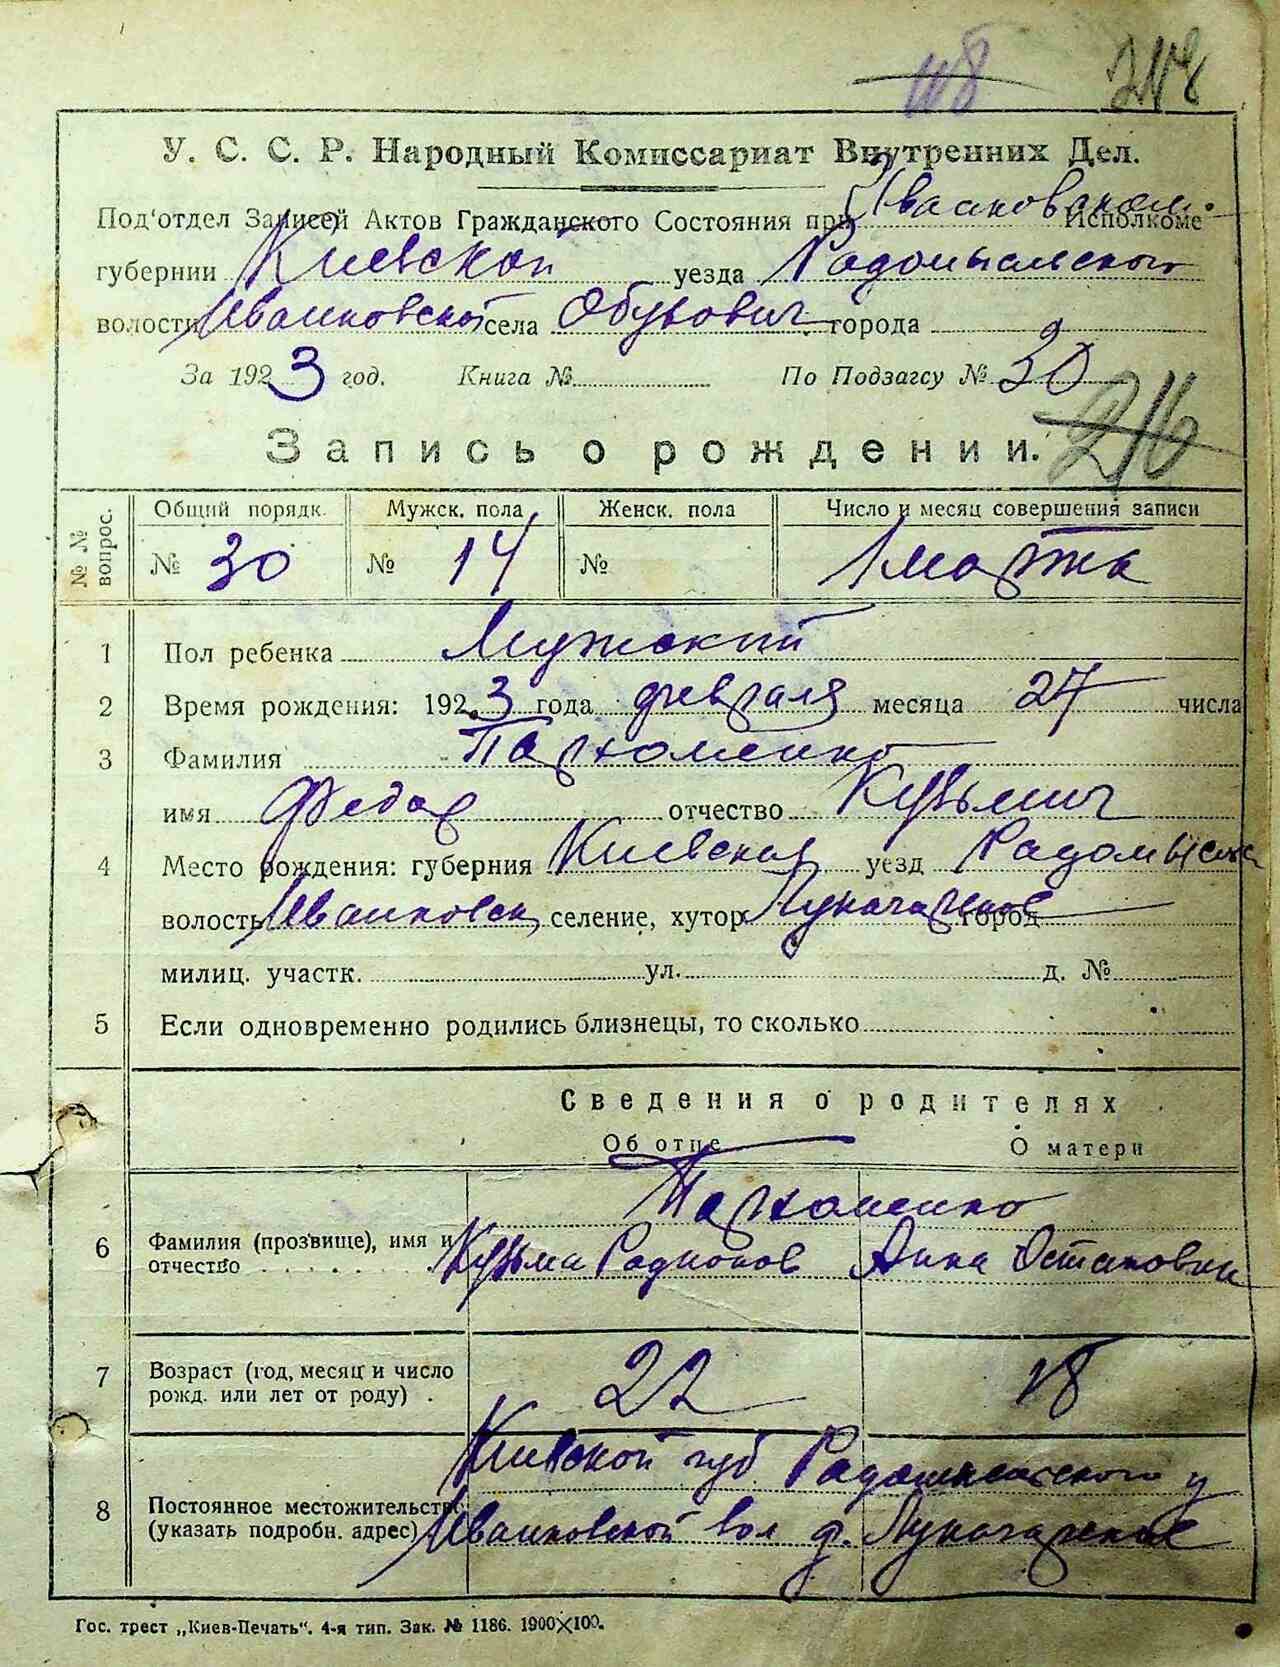 118 218
У. С. С. Р. Народный Комиссариат Внутренних Дел.
Под'отдел Записей Актов Гражданского Состояния при Иванковском Исполкоме
губернии Киевской уезда Радомысльского
волости Иванковской села Обухович города
За 1923 год. Книга № По Подзагсу № 30
216
Запись о рождении.
№ № вопрос. Общий порядк. Мужск. пола Женск. пола Число и месяц совершения записи
№ 30 № 14 № 1 марта
1 Пол ребенка Мужский
2 Время рождения: 1923 года февраля месяца 27 числа
3 Фамилия Пархоменко
имя Федор отчество Кузьмич
4 Место рождения: губерния Киевская уезд Радомысльс
волость Иванковск селение, хутор город
милиц. участк. ул. д. №
5 Если одновременно родились близнецы, то сколько
Сведения о родителях
Об отце О матери
Пархоменко
6 Фамилия (прозвище), имя и отчество Кузьма Родионов Анна Остаповна
7 Возраст (год, месяц и число рожд. или лет от роду) . 22 18
Киевской губ Радомысльского у
8 Постоянное местожительство (указать подробн. адрес) Иванковской вол
Гос. трест „Киев-Печать“. 4-я тип. Зак. № 1186. 1900×100.